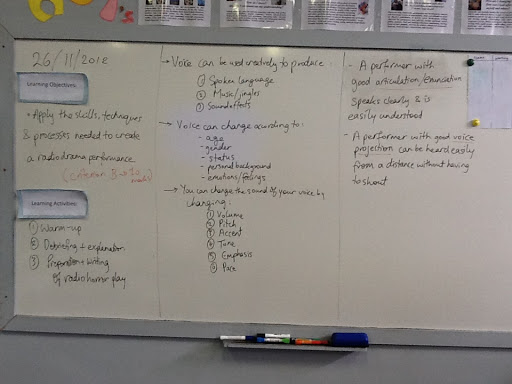 26/11/2018
Learning Objectives:
• Apply the skills, techniques
& processes needed to create
a radio drama performance
(Criterion B →
Learning Activities:
① Warm-up
② Debriefing + explanation
③ Preparation + writing
of radio horror play
→ Voice can be used creatively to produce:
① Spoken language
② Music/jingles
③ Sound effects
→ Voice can change acording to:
- age
- gender
- status
- personal background
- emotions/feelings
→ You can change the sound of your voice by
changing:
① Volume
② Pitch
③ Accent
④ Tone
⑤ Emphasis
⑥ Pace
- A performer with
good articulation/enunciation
speaks clearly & is
easily understood
- A performer with good voice
projection can be heard easily
from a distance without having
to shout